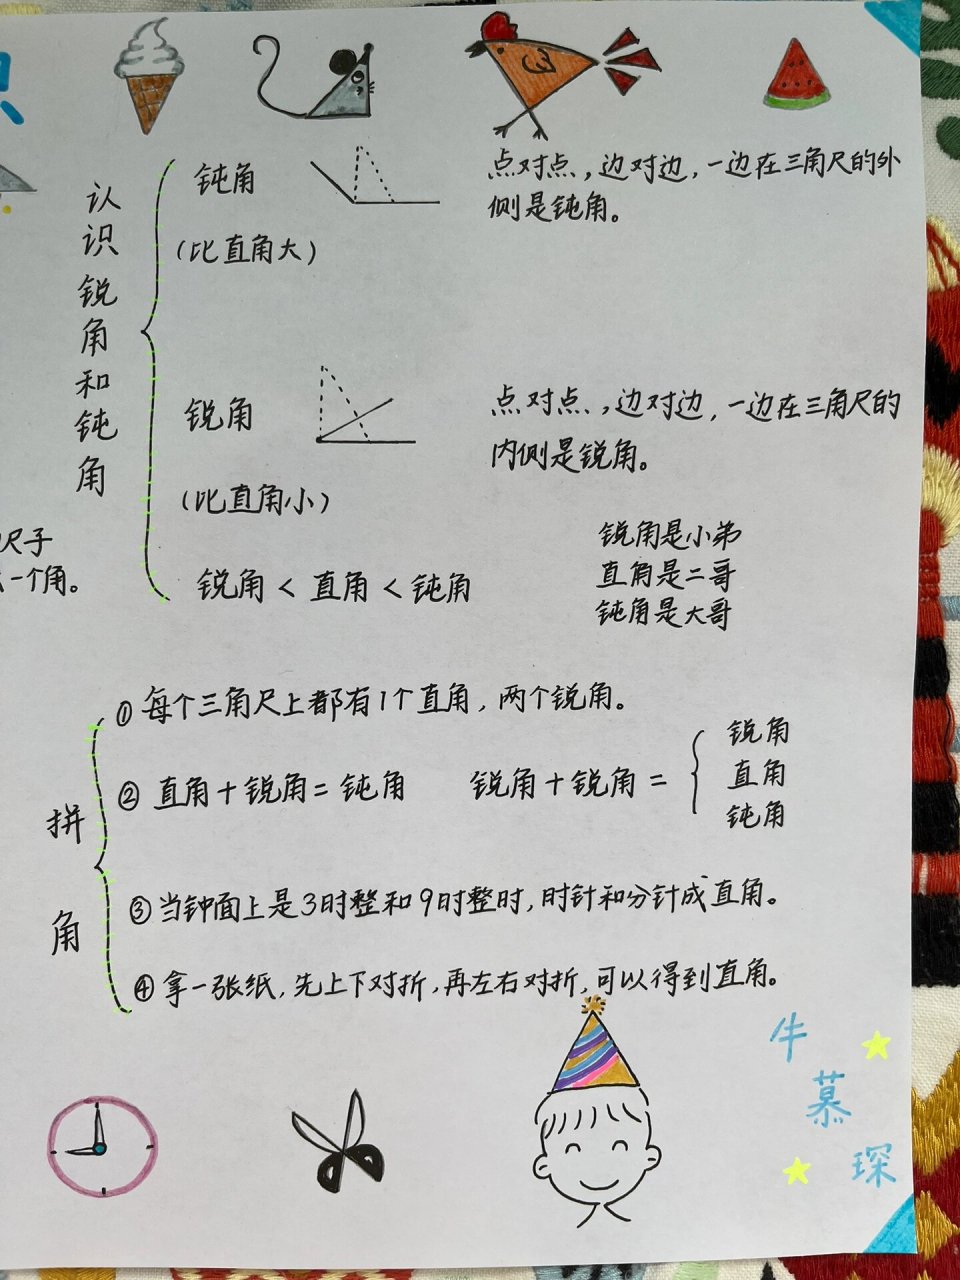 认识锐角和钝角
钝角
(比直角大)
点对点，边对边，一边在三角尺的外
侧是钝角。
锐角
(比直角小)
点对点，边对边，一边在三角尺的
内侧是锐角。
锐角<直角<钝角
锐角是小弟
直角是二哥
钝角是大哥
尺子
一个角。
拼角
①每个三角尺上都有1个直角，两个锐角。
②直角+锐角=钝角 锐角+锐角=
锐角
直角
钝角
③当钟面上是3时整和9时整时，时针和分针成直角。
④拿一张纸，先上下对折，再左右对折，可以得到直角。
牛慕琛